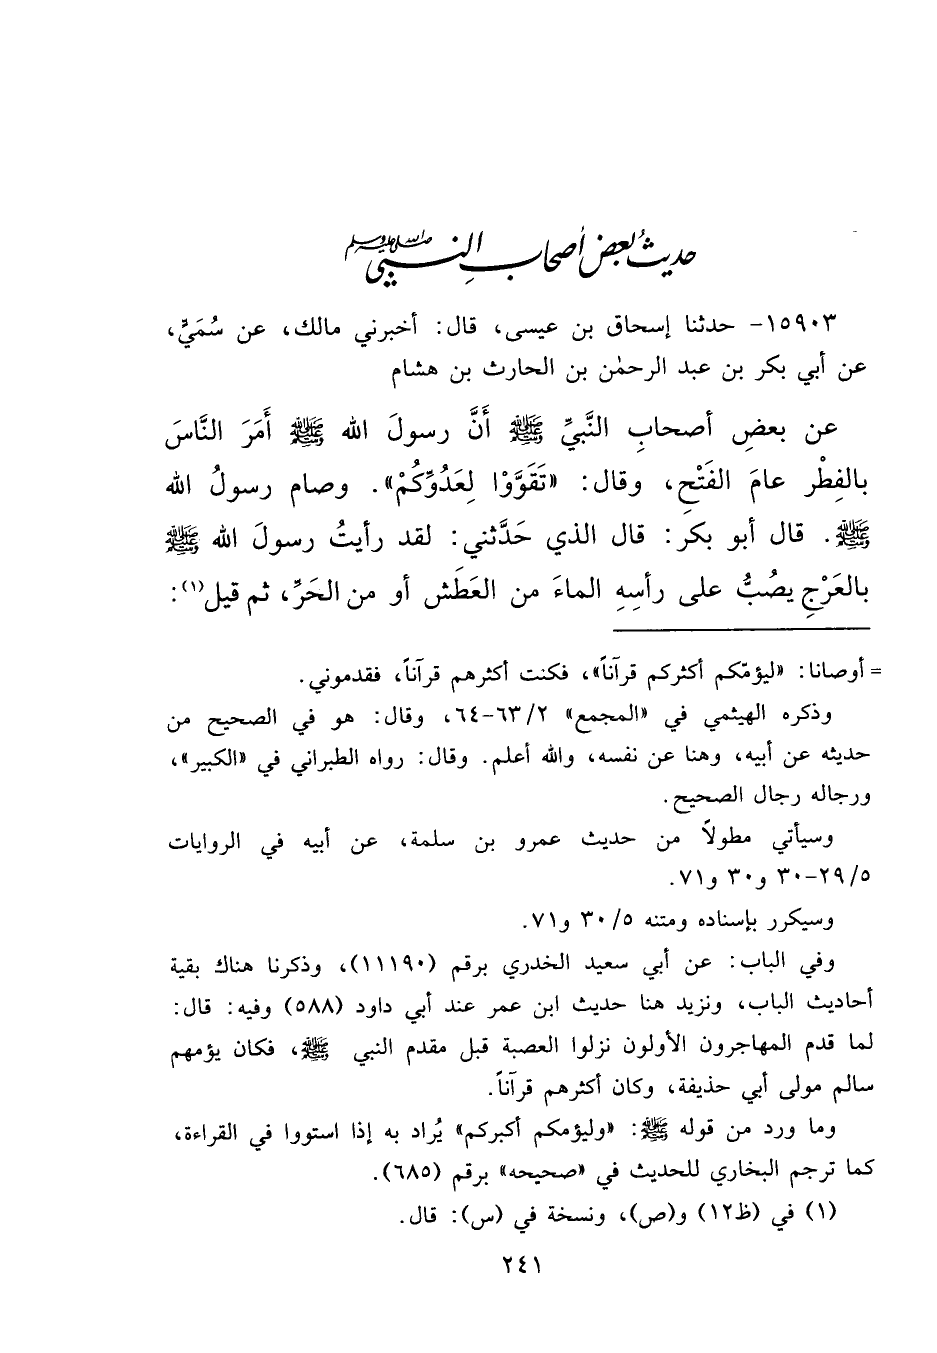 حديثُ بعض أصحاب النبي صلى الله عليه وسلم
١٥٩٠٣- حدثنا إسحاق بن عيسى، قال: أخبرني مالك، عن سُمَيٍّ،
عن أبي بكر بن عبد الرحمٰن بن الحارث بن هشام
عن بعضِ أصحابِ النَّبيِّ ﷺ أَنَّ رسولَ الله ﷺ أَمَرَ النَّاسَ
بالفِطْر عامَ الفَتْحِ، وقال: «تَقَوَّوْا لِعَدُوِّكُمْ». وصام رسولُ الله
ﷺ. قال أبو بكر: قال الذي حَدَّثني: لقد رأيتُ رسولَ الله ﷺ
بالعَرْجِ يصُبُّ على رأسِهِ الماءَ من العَطَش أو من الحَرِّ، ثم قيل(١):
= أوصانا: «ليؤمّكم أكثركم قرآناً»، فكنت أكثرهم قرآناً، فقدموني.
وذكره الهيثمي في «المجمع» ٦٣/٢-٦٤، وقال: هو في الصحيح من
حديثه عن أبيه، وهنا عن نفسه، والله أعلم. وقال: رواه الطبراني في «الكبير»،
ورجاله رجال الصحيح.
وسيأتي مطولاً من حديث عمرو بن سلمة، عن أبيه في الروايات
٢٩/٥-٣٠ و٣٠ و٧١.
وسيكرر بإسناده ومتنه ٣٠/٥ و٧١.
وفي الباب: عن أبي سعيد الخدري برقم (١١١٩٠)، وذكرنا هناك بقية
أحاديث الباب، ونزيد هنا حديث ابن عمر عند أبي داود (٥٨٨) وفيه: قال:
لما قدم المهاجرون الأولون نزلوا العصبة قبل مقدم النبي ﷺ، فكان يؤمهم
سالم مولى أبي حذيفة، وكان أكثرهم قرآناً.
وما ورد من قوله ﷺ: «وليؤمكم أكبركم» يُراد به إذا استووا في القراءة،
كما ترجم البخاري للحديث في «صحيحه» برقم (٦٨٥).
(١) في (ظ١٢) و(ص)، ونسخة في (س): قال.
٢٤١